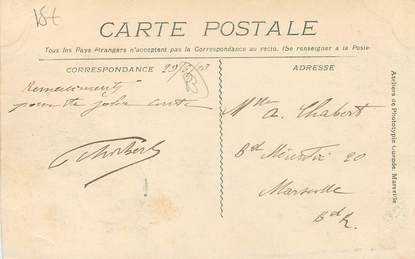 CARTE POSTALE
Tous les Pays Etrangers n'acceptent pas la Correspondance au recto. (Se renseigner à la Poste
CORRESPONDANCE
ADRESSE
Remerciements
pour ta jolie carte
Mlle A. Chabert
Bd 20
Marseille
B. d. R.
Ateliers de Phototypie Marseille